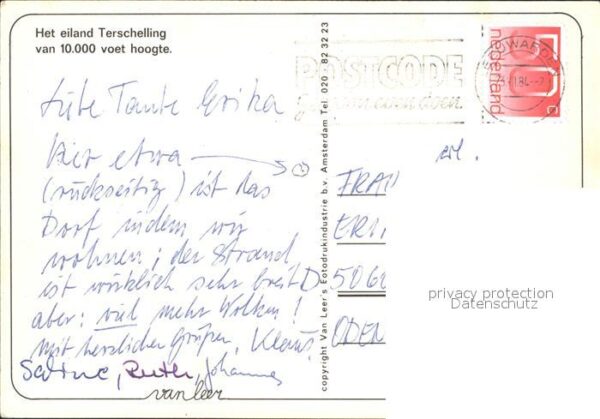 Het eiland Terschelling
van 10.000 voet hoogte.
Liebe Tante Erika
Hier etwa
(rückseitig) ist das
Dorf indem wir
wohnen; der Strand
ist wirklich sehr breit
aber: viel mehr Wolken!
Mit herzlichen Grüßen, Klaus
Sabine, Ruth, Johannes
van leer
copyright Van Leer's Fotodrukindustrie b.v. Amsterdam Tel. 020 - 82 32 23
POSTCODE
nederland
50 c
FRAU
ERI
D-5060
ODEN
privacy protection
Datenschutz